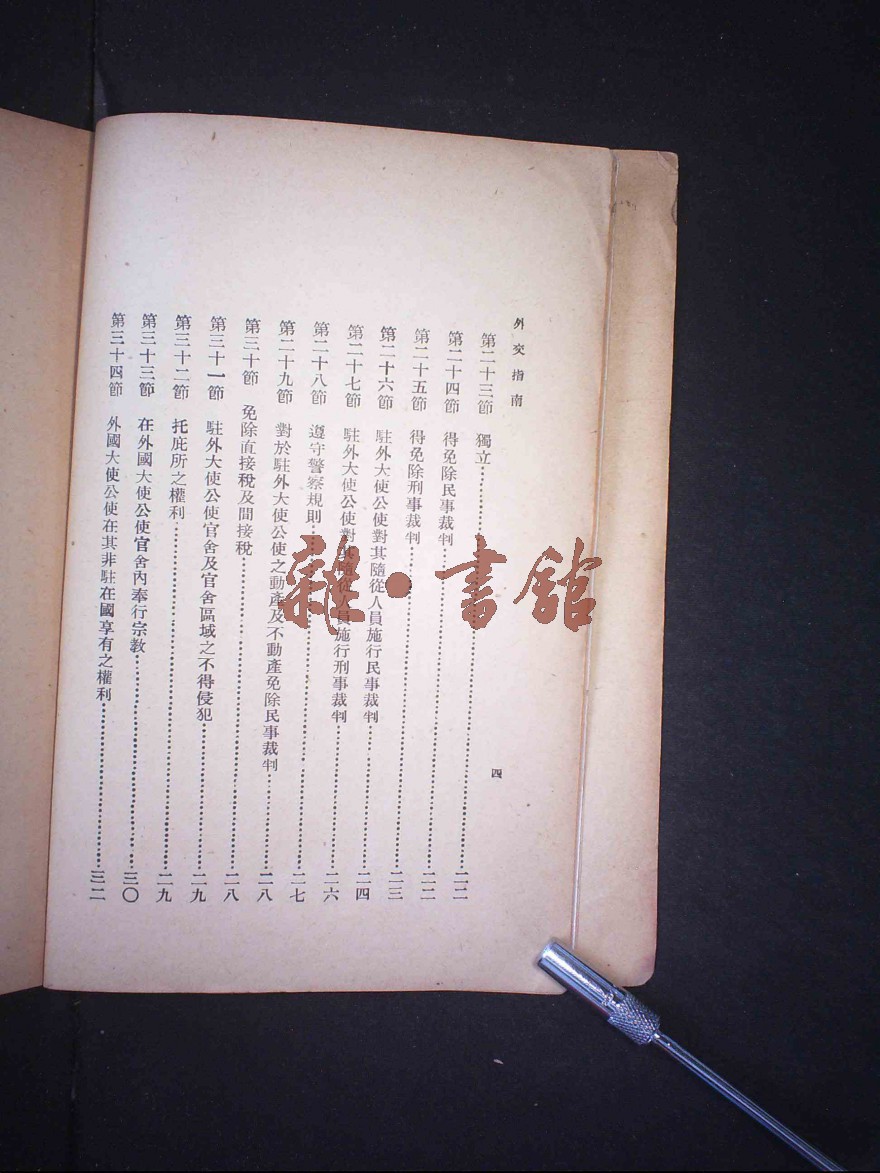 外交指南
四
第二十三節 獨立……二二
第二十四節 得免除民事裁判……二二
第二十五節 得免除刑事裁判……二三
第二十六節 駐外大使公使對其隨從人員施行民事裁判……二四
第二十七節 駐外大使公使對其隨從人員施行刑事裁判……二六
第二十八節 遵守警察規則……二七
第二十九節 對於駐外大使公使之動產及不動產免除民事裁判……二八
第三十節 免除直接稅及間接稅……二八
第三十一節 駐外大使公使官舍及官舍區域之不得侵犯……二九
第三十二節 托庇所之權利……二九
第三十三節 在外國大使公使官舍內奉行宗教……三〇
第三十四節 外國大使公使在其非駐在國享有之權利……三二
雜·書館